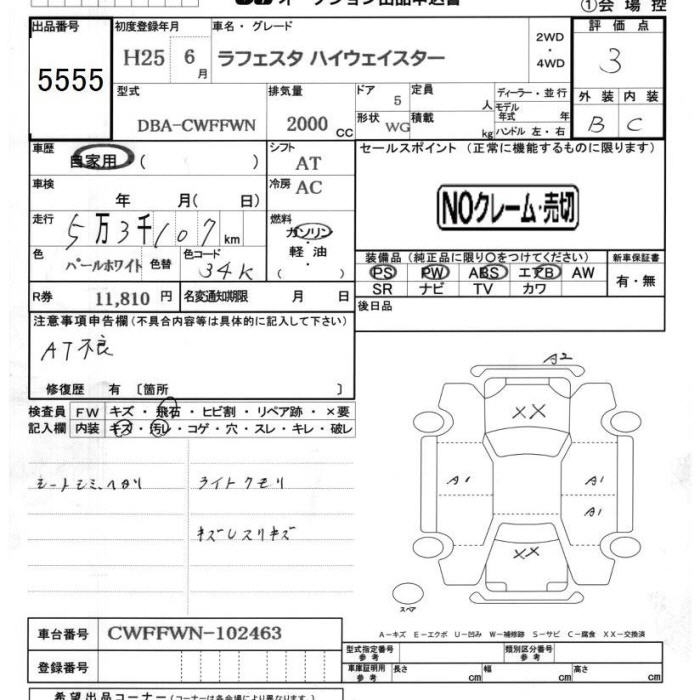 ①会場控
出品番号
5555
初度登録年月
H25 6月
車名・グレード
ラフェスタ ハイウェイスター
2WD
・
4WD
評価点
3
外装 内装
B C
型式
DBA-CWFFWN
排気量
2000 CC
ドア
5
形状
WG
定員
人
積載
kg
ディーラー・並行
モデル
年式 年
ハンドル 左・右
車歴
自家用 ( )
シフト
AT
車検
年 月(日)
冷房
AC
走行
5万3千107 km
燃料
ガソリン
・
軽・油
( )
色
パールホワイト
色替
色コード
34K
R券 11,810円
名変通知期限 月 日
セールスポイント (正常に機能するものに限ります)
NOクレーム・売切
装備品 (純正品に限り○をつけてください)
PS PW ABS エアB AW
SR ナビ TV カワ
新車保証書
有・無
後日品
注意事項申告欄 (不具合内容等は具体的に記入して下さい)
AT不良
修復歴 有 〔箇所 〕
検査員
記入欄
FW キズ・飛石・ヒビ割・リペア跡・×要
内装 キズ・汚レ・コゲ・穴・スレ・キレ・破レ
シートシミ、ヘタリ
ライトクモリ
キズUスリキズ
A2
XX
A1
A1
A1
XX
スペア
A-キズ E-エクボ U-凹み W-補修跡 S-サビ C-腐食 XX-交換済
車台番号 CWFFWN-102463
登録番号
型式指定番号
参考
類別区分番号
参考
車庫証明用
参考
長さ cm 幅 cm 高さ cm
希望出品コーナー (コーナーは各会場により異なります)